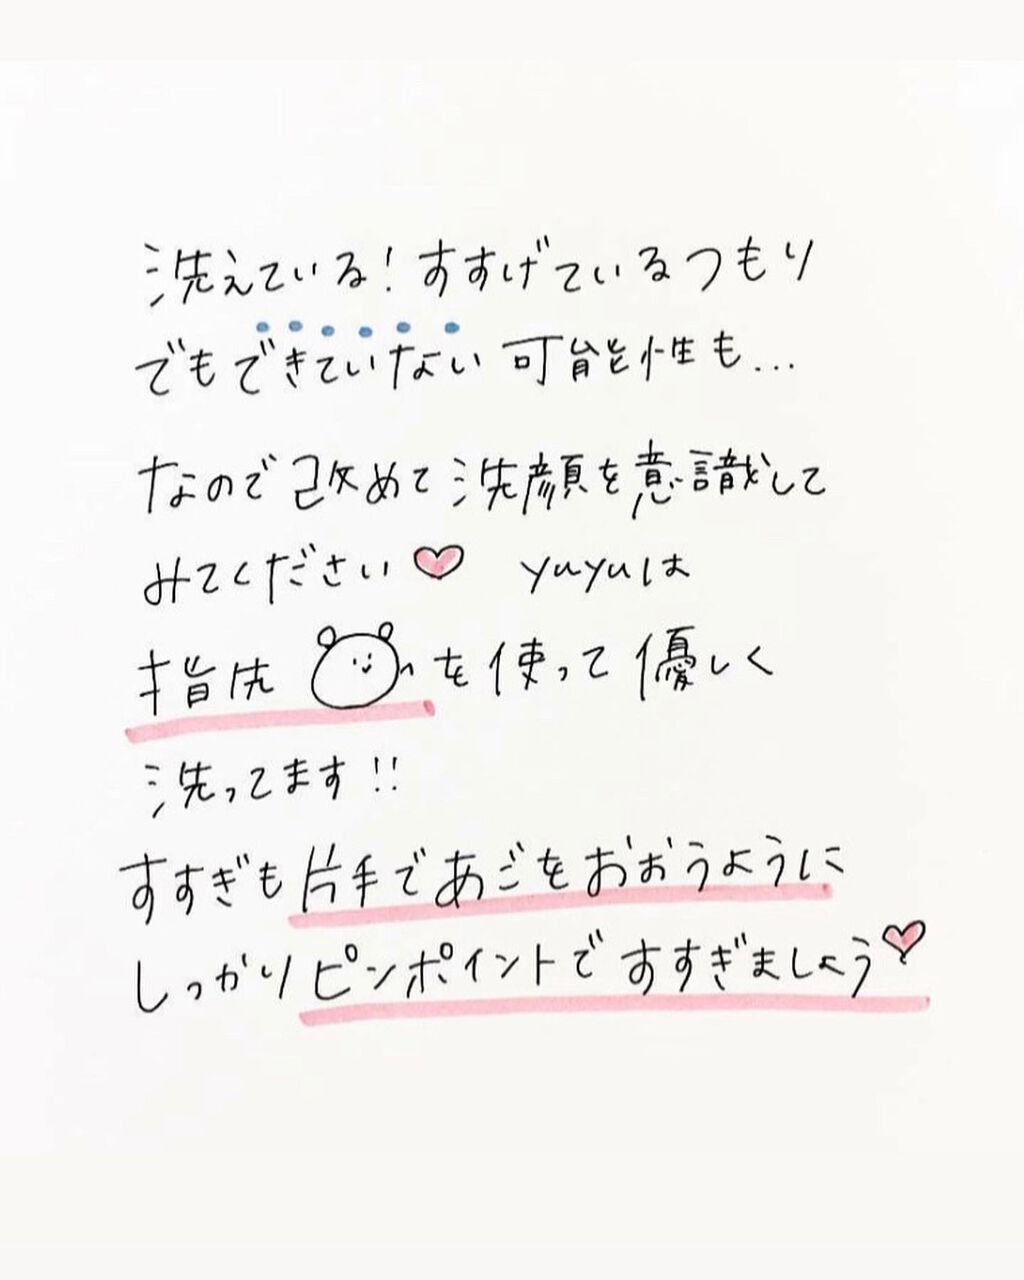 洗えている!すすげているつもり
でもできていない可能性も...
なので改めて洗顔を意識して
みてください♡ yuyuは
指先を使って優しく
洗ってます!!
すすぎも片手であごをおおうように
しっかりピンポイントですすぎましょう♡